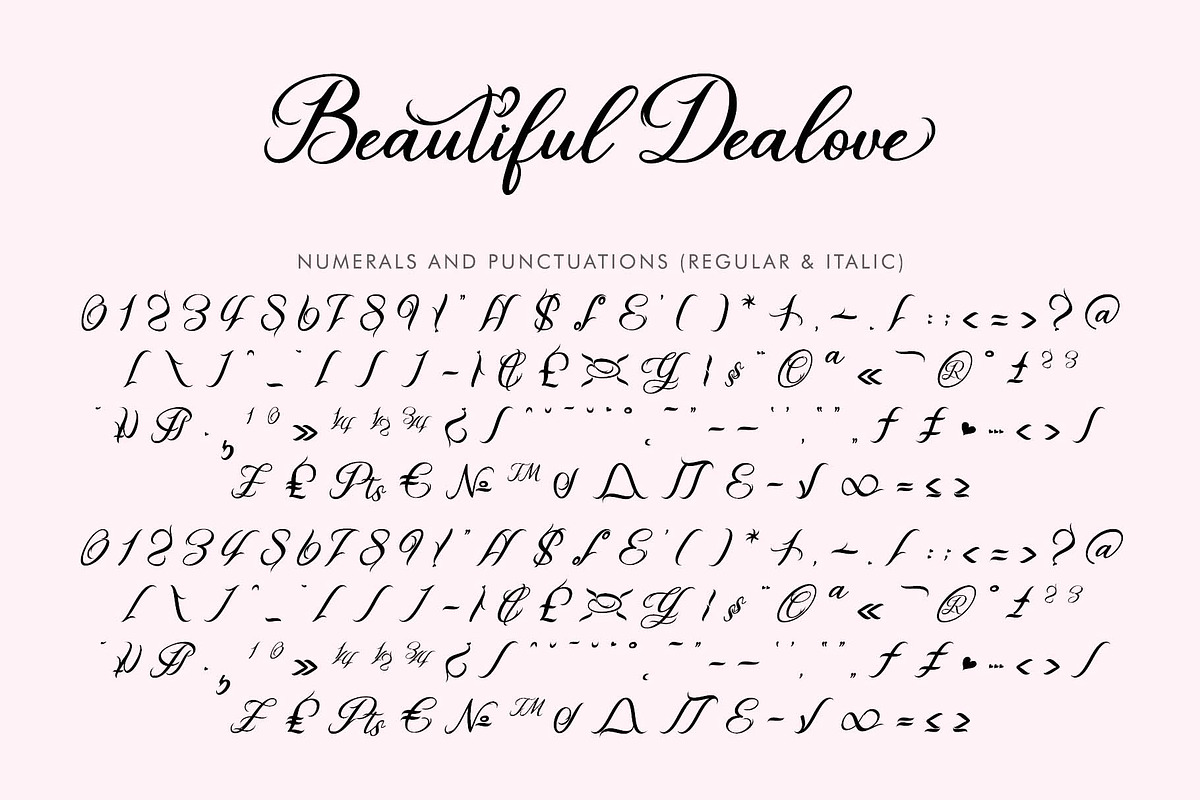 Beautiful Dealove
NUMERALS AND PUNCTUATIONS (REGULAR & ITALIC)
0 1 2 3 4 5 6 7 8 9 ! " # $ % & ' ( ) * + , - . / : ; < = > ? @
[ \ ] ^ _ ` { | } ~ ¡ ¢ £ ¤ ¥ ¦ § ¨ © ª « ¯ ® ° ± ² ³
´ µ ¶ · ¸ ¹ º » ¼ ½ ¾ ¿ ƒ ˆ ˇ ˉ ˘ ˙ ˚ ˛ ˜ ˝ – — ‘ ’ ‚ “ ” „ † ‡ • … ‹ › ⁄
₣ ₤ ₧ € № ™ ∂ ∆ ∏ ∑ − √ ∞ ≈ ≤ ≥
0 1 2 3 4 5 6 7 8 9 ! " # $ % & ' ( ) * + , - . / : ; < = > ? @
[ \ ] ^ _ ` { | } ~ ¡ ¢ £ ¤ ¥ ¦ § ¨ © ª « ¯ ® ° ± ² ³
´ µ ¶ · ¸ ¹ º » ¼ ½ ¾ ¿ ƒ ˆ ˇ ˉ ˘ ˙ ˚ ˛ ˜ ˝ – — ‘ ’ ‚ “ ” „ † ‡ • … ‹ › ⁄
₣ ₤ ₧ € № ™ ∂ ∆ ∏ ∑ − √ ∞ ≈ ≤ ≥